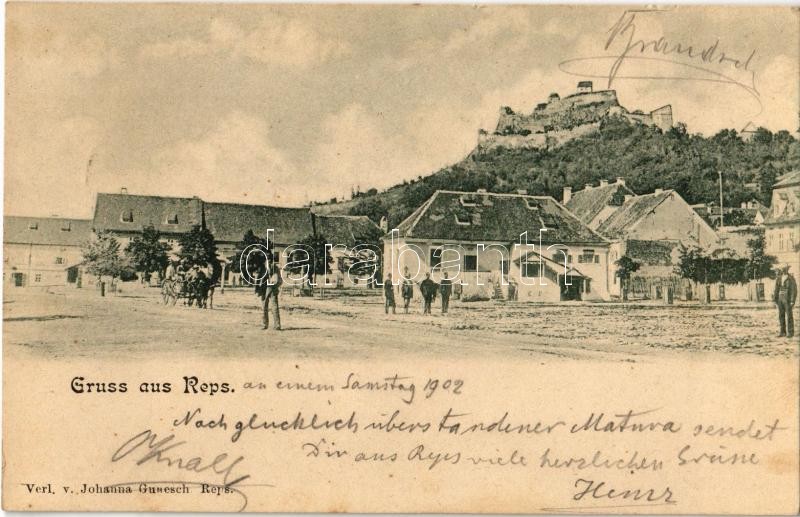 Brandsch
darabanth
Gruss aus Reps. an einem Samstag 1902
Nach glücklich überstandener Matura sendet
Dir aus Reps viele herzlichen Grüsse
Heinz
Knall
Verl. v. Johanna Gunesch Reps.